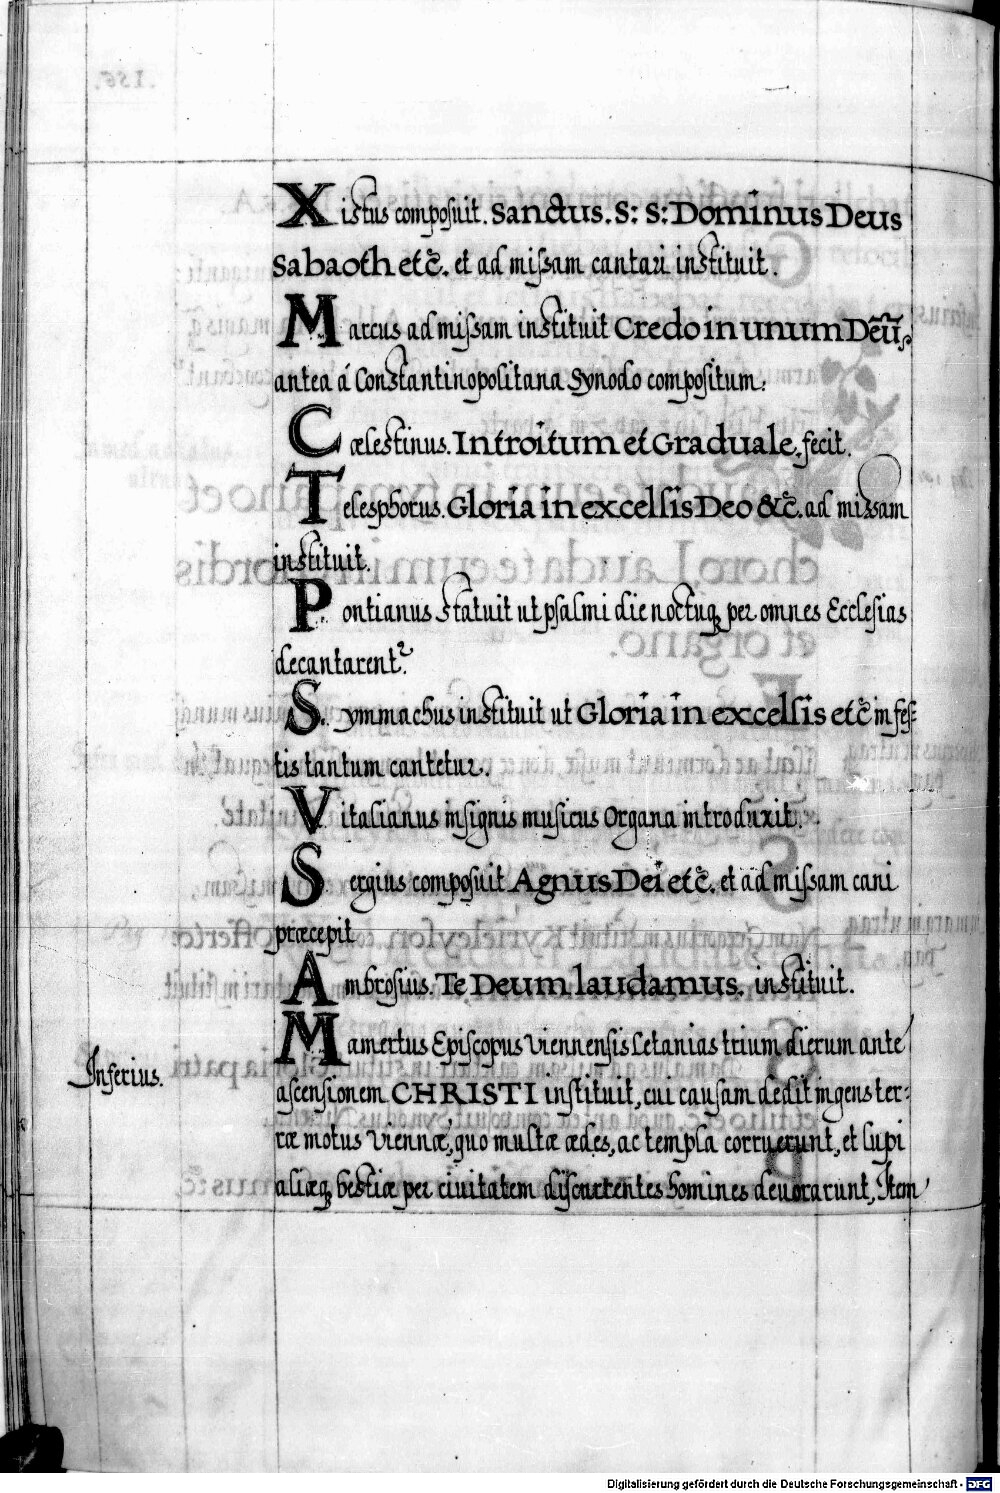 Xistus composuit. Sanctus. S: S: Dominus Deus
Sabaoth etc̃. et ad missam cantari instituit.
Marcus ad missam instituit Credo in unum Deũ,
antea á Constantinopolitana Synodo compositum.
Cælestinus. Introitum et Graduale. fecit.
Telesphorus. Gloria in excelsis Deo &c̃. ad missam
instituit.
Pontianus statuit ut psalmi die noctuq; per omnes Ecclesias
decantarent.
Symmachus instituit ut Gloria in excelsis etc̃ in fes=
tis tantum cantetur.
Vitalianus insignis musicus Organa introduxit.
Sergius composuit Agnus Dei etc̃. et ad missam cani
præcepit
Ambrosius. Te Deum laudamus. instituit.
Mamertus Episcopus Viennensis Letanias trium dierum ante
Inferius.
ascensionem CHRISTI instituit, cui causam dedit ingens ter=
ræ motus Viennæ, quo multæ ædes, ac templa corruerunt, et lupi
aliæq; bestiæ per ciuitatem discurrentes homines deuorarunt, Item
Digitalisierung gefördert durch die Deutsche Forschungsgemeinschaft - DFG